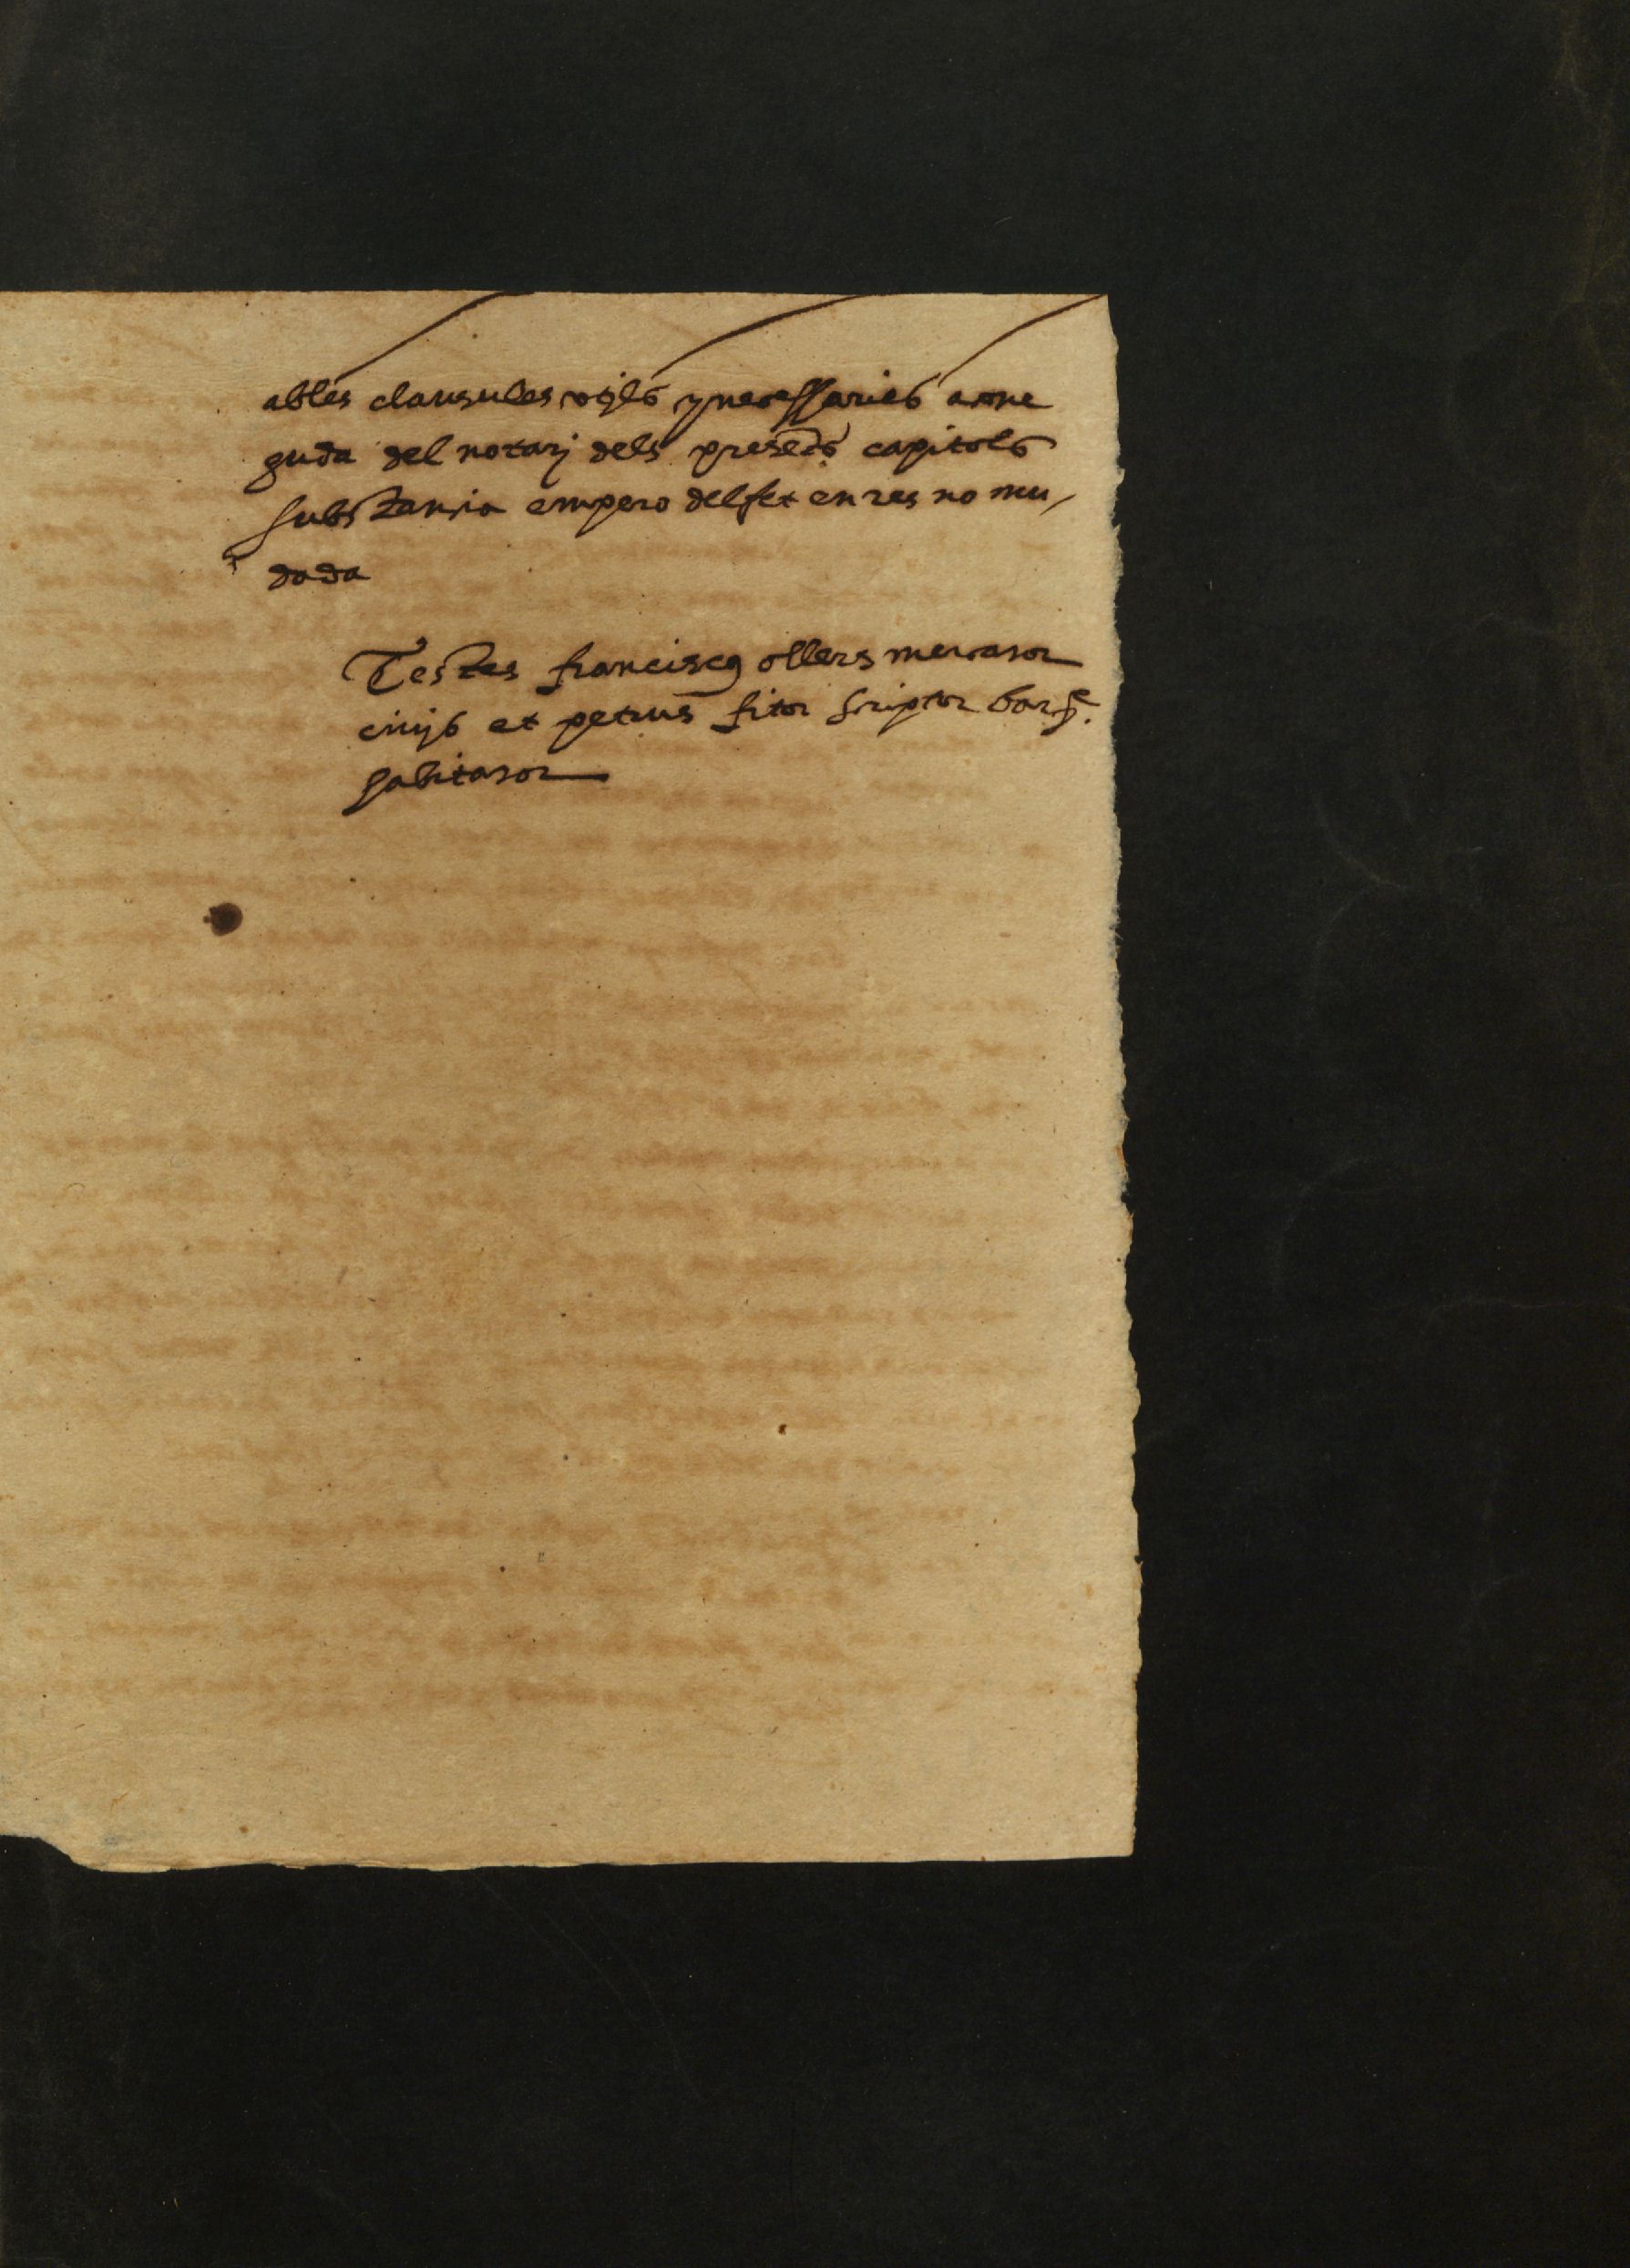 ab les clausules vtils y necessaries a cone
guda del notarj dels presents capitols
substancia empero del fet en res no mu
dada
Testes franciscus ollers mercator
ciuis et petrus fitor scriptor barne.
habitator